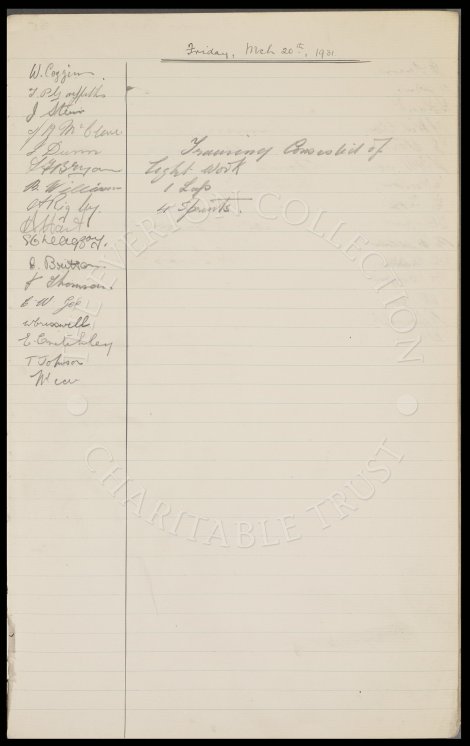 Friday, Mch 20th, 1931
W. Coggins
T. P. Griffiths
J Stein
J McClure
J Dunn
Bryan
B. Williams
A Rigby.
Hart
S C Leagra
C. Britton.
J Thomson.
C W Gee
W Cresswell
E. Critchley
T Johnson
Training Consisted of
light Work
1 Lap
4 Sprints.
THE EVERTON COLLECTION
CHARITABLE TRUST